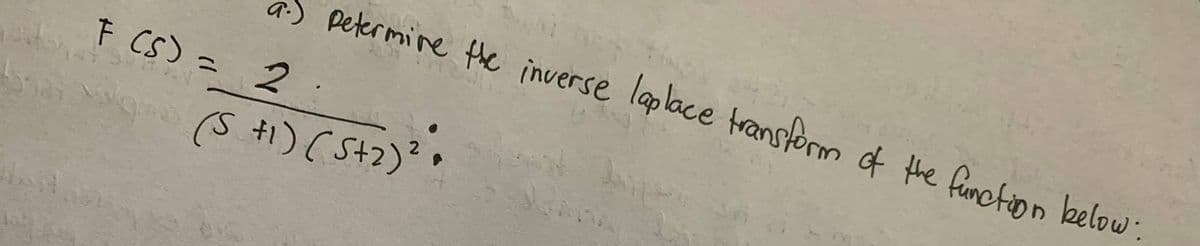 a.) Determine the inverse laplace transform of the function below:
F(s) = 2
(s+1)(s+2)²